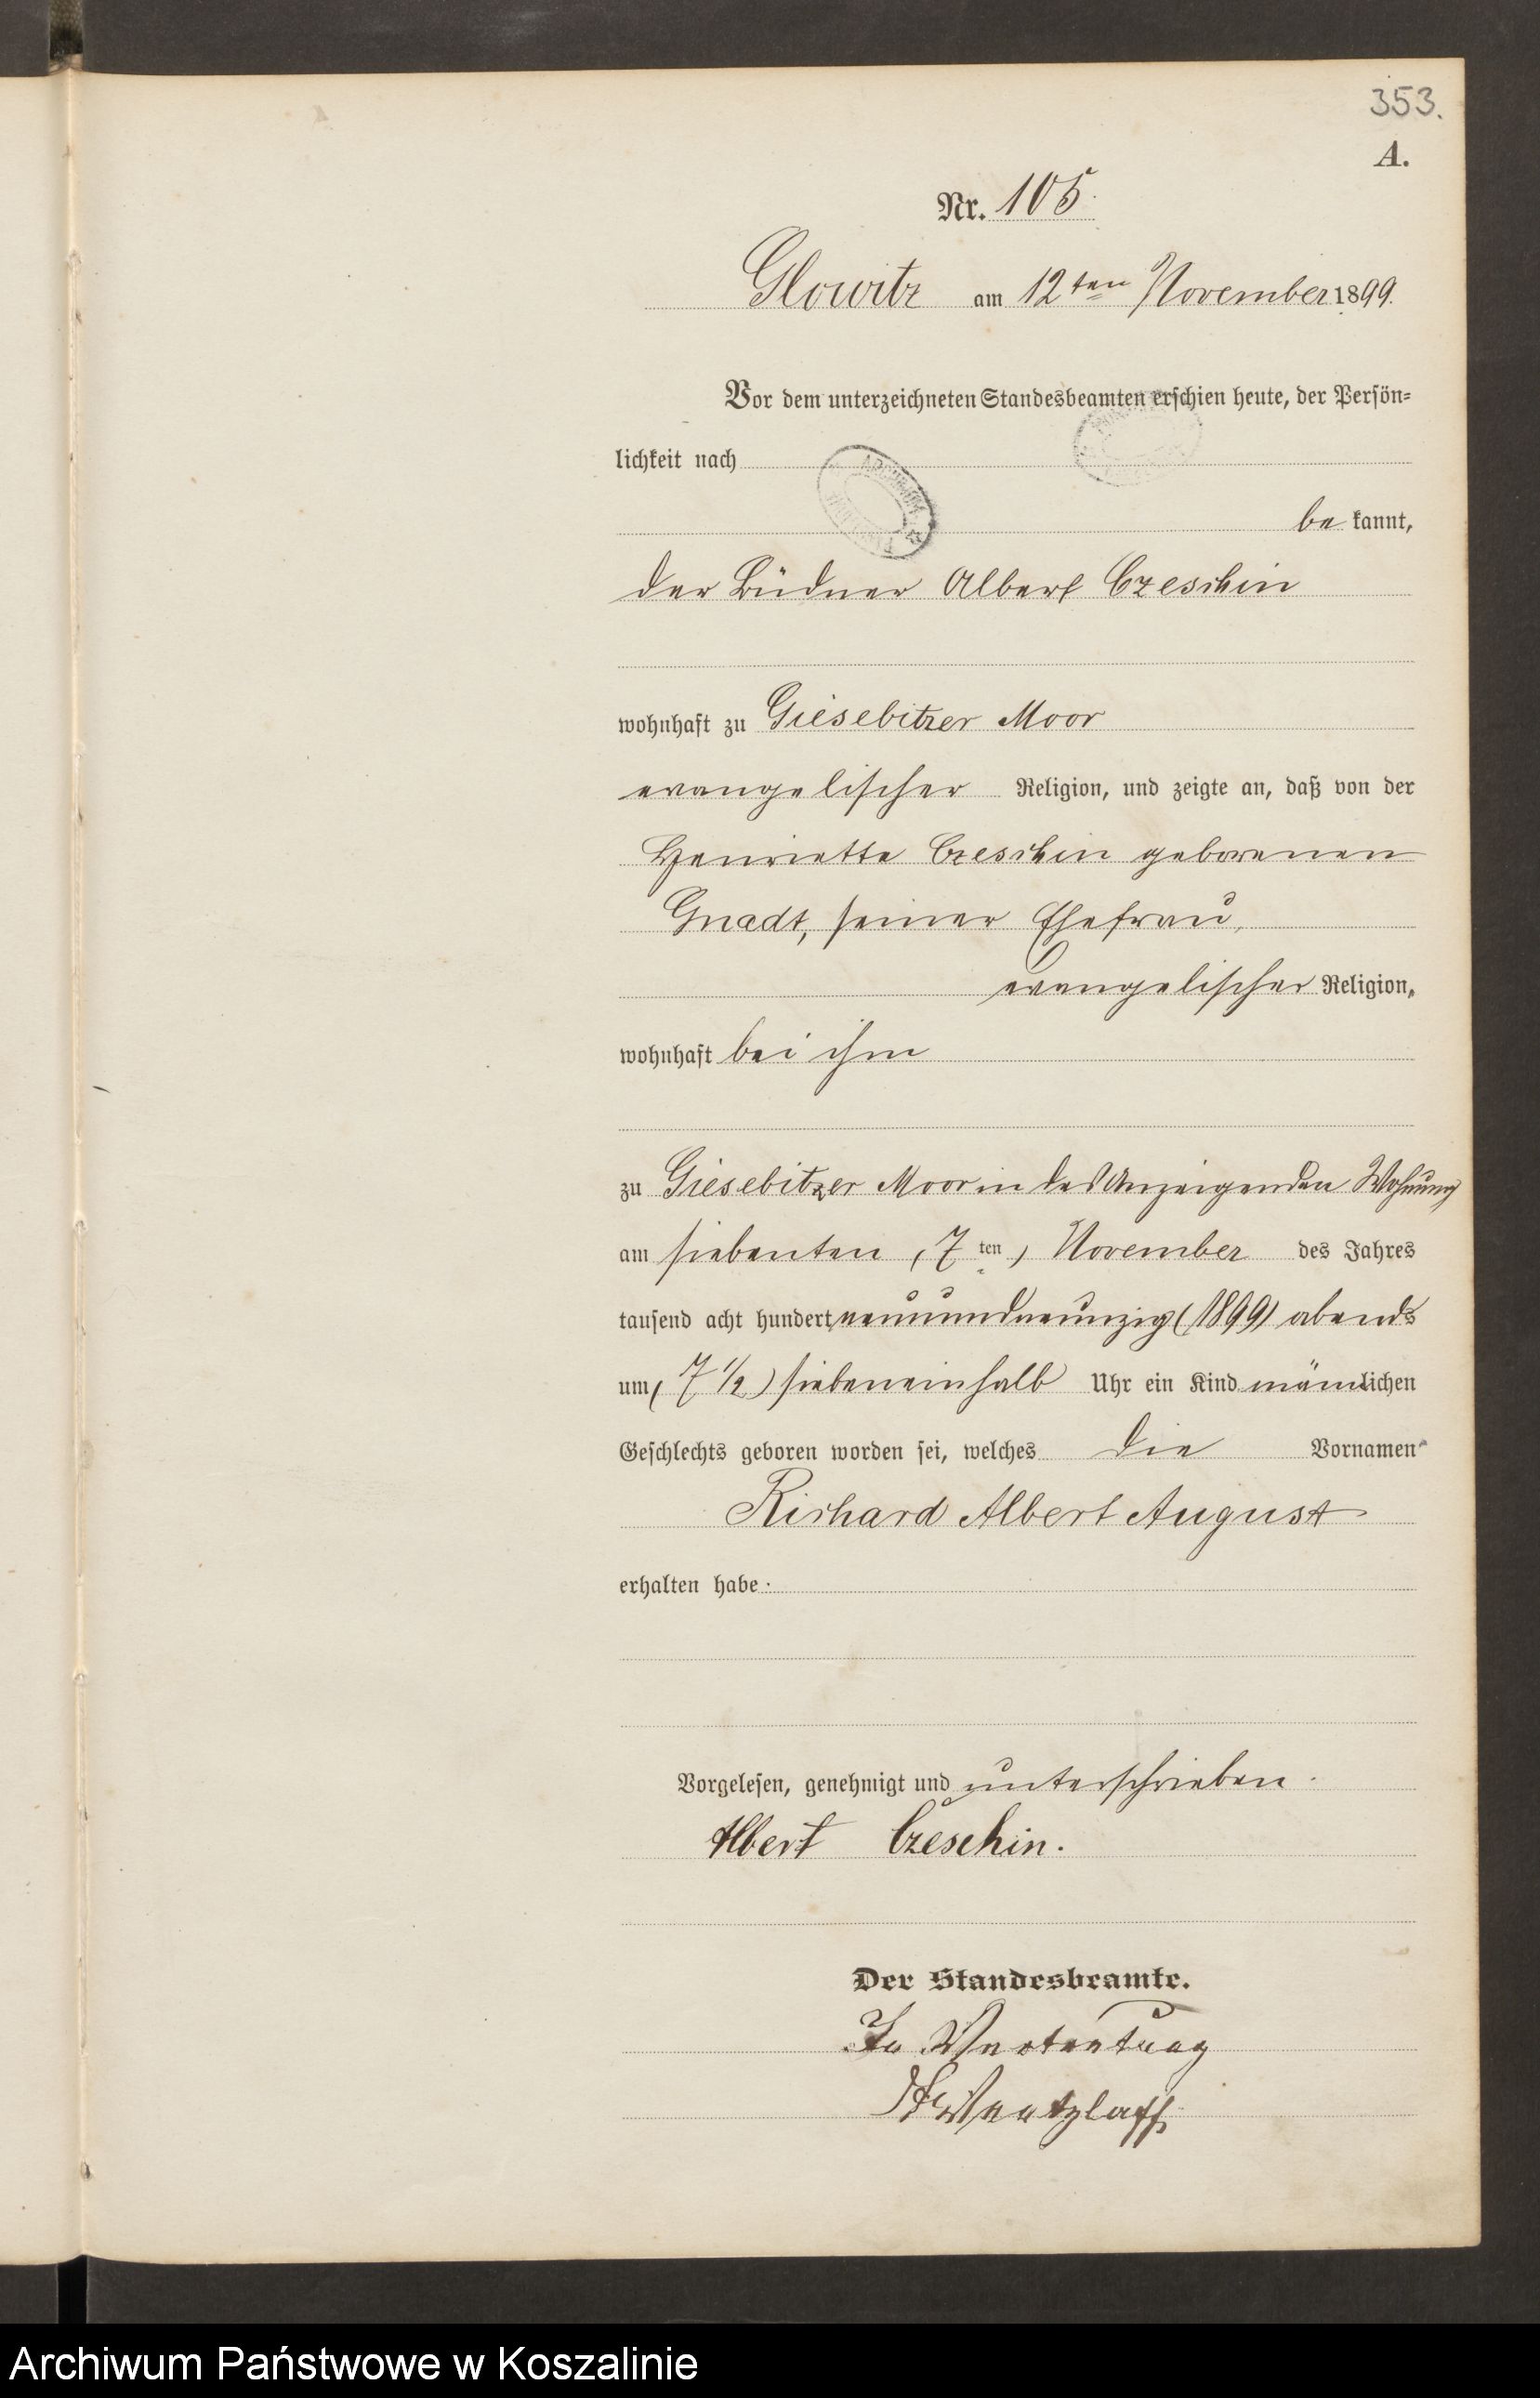 353.
A.
Nr. 105.
Glowitz am 12ten November 1899.
Vor dem unterzeichneten Standesbeamten erschien heute, der Persön-
lichkeit nach
be kannt,
der Büdner Albert Czeschin
wohnhaft zu Giesebitzer Moor
evangelischer Religion, und zeigte an, daß von der
Henriette Czeschin geborenen
Gnadt, seiner Ehefrau,
evangelischer Religion,
wohnhaft bei ihm
zu Giesebitzer Moor in des Anzeigenden Wohnung
am siebenten (7ten) November des Jahres
tausend acht hundert neunundneunzig (1899) abends
um (7 1/2) siebeneinhalb Uhr ein Kind männlichen
Geschlechts geboren worden sei, welches die Vornamen
Richard Albert August
erhalten habe.
Vorgelesen, genehmigt und unterschrieben.
Albert Czeschin.
Der Standesbeamte.
In Vertretung
Wentzlaff
Archiwum Państwowe w Koszalinie